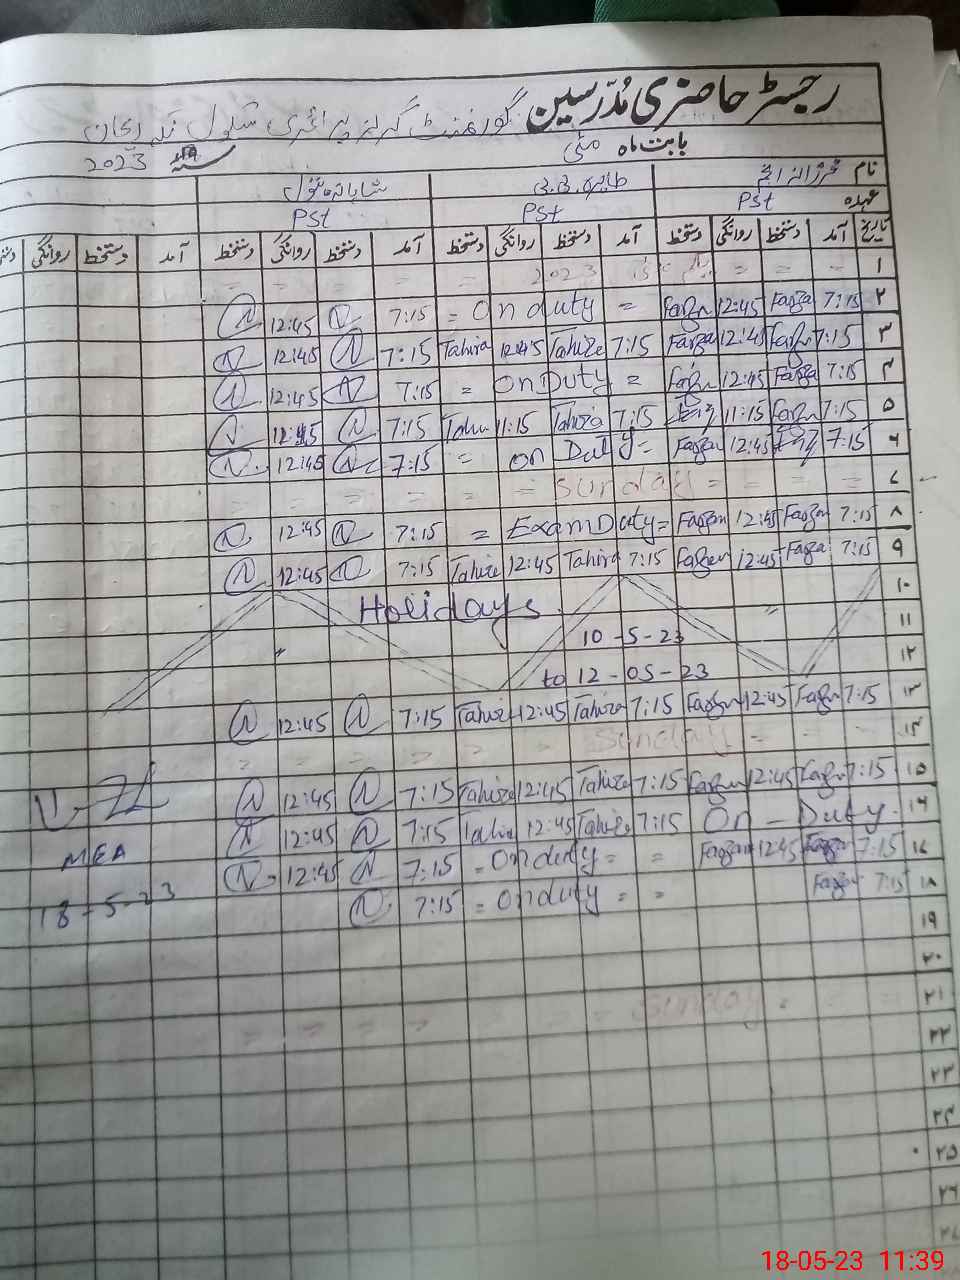 رجسٹر حاضری مُدرّسین گورنمنٹ گرلز پرائمری سکول
بابت ماہ مئی سنہ 2023
نام فرزانہ انجم طاہرہ بی بی شبانہ بتول
عہدہ PSt PSt PSt
تاریخ آمد دستخط روانگی دستخط آمد دستخط روانگی دستخط آمد دستخط روانگی دستخط آمد دستخط روانگی دستخط
۱ 2023 = = =
۲ 7:15 Farza 12:45 Farzn = On duty = 7:15 12:45
۳ 7:15 Farzn 12:45 Farza 7:15 Tahire 12:45 Tahira 7:15 12:45
۴ 7:15 Farza 12:45 Farzn = On Duty = 7:15 12:45
۵ 7:15 Farzn 11:15 7:15 Tahira 11:15 Tahir 7:15 12:45
۶ 7:15 12:45 Farzan = on Duty = 7:15 12:45
۷ = = = = Sunday = = = =
۸ 7:15 Farzan 12:45 Farzan = Exam Duty = 7:15 12:45
۹ 7:15 Farza 12:45 Farzan 7:15 Tahira 12:45 Tahire 7:15 12:45
۱۰ Holidays
۱۱ 10-5-23 〃
۱۲ to 12-05-23
۱۳ 7:15 Farzn 12:45 Farzan 7:15 Tahira 12:45 Tahire 7:15 12:45
۱۴ = = Sunday = = = =
۱۵ 7:15 Farzn 12:45 Farzan 7:15 Tahire 12:45 Tahire 7:15 12:45
۱۶ On - Duty 7:15 Tahire 12:45 Tahir 7:15 12:45
MEA
۱۷ 7:15 Farzan 12:45 Farzan = On duty = = 7:15 12:45
18-5-23
۱۸ 7:15 Farzan = On duty = = 7:15
۱۹
۲۰
۲۱ = = Sunday = = = =
۲۲
۲۳
۲۴
۲۵
۲۶
۲۷
18-05-23 11:39